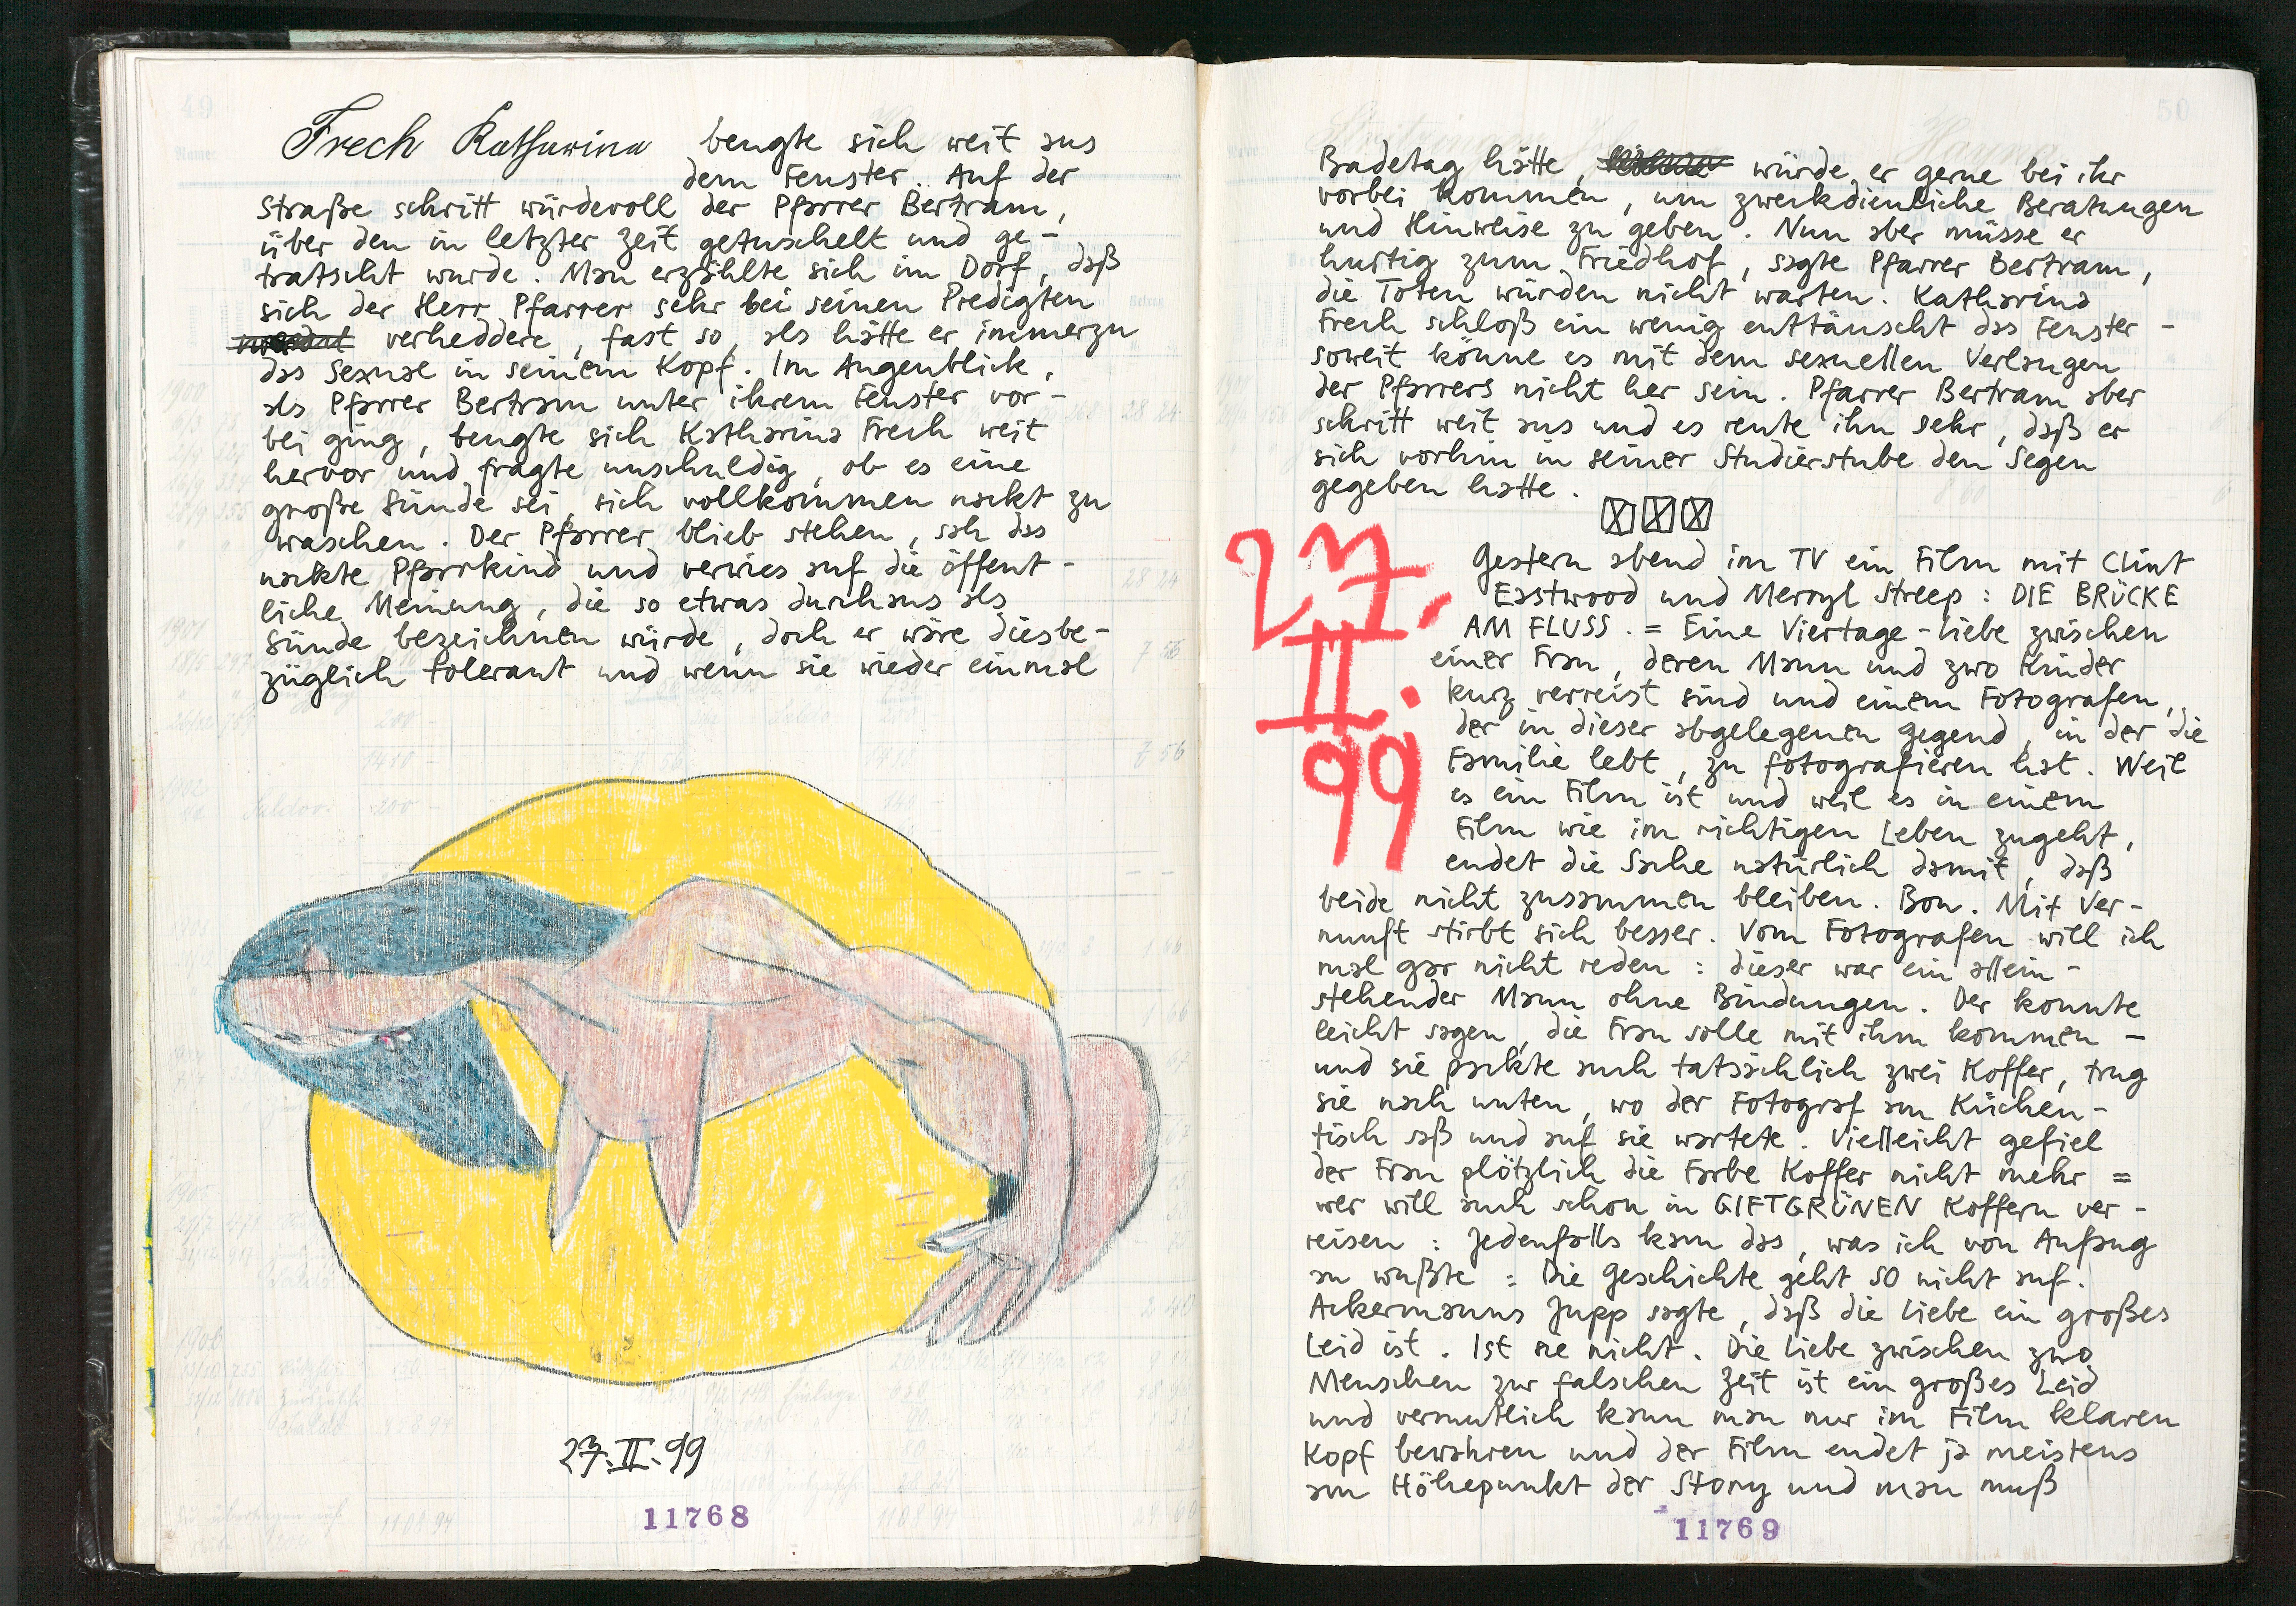 Frech Katharina beugte sich weit aus
dem Fenster. Auf der
Straße schritt würdevoll der Pfarrer Bertram,
über den in letzter Zeit getuschelt und ge-
tratscht wurde. Man erzählte sich im Dorf, daß
sich der Herr Pfarrer sehr bei seinen Predigten
verheddere, fast so, als hätte er immerzu
das Sexual in seinem Kopf. Im Augenblick,
als Pfarrer Bertram unter ihrem Fenster vor-
bei ging, beugte sich Katharina Frech weit
hervor und fragte unschuldig, ob es eine
große Sünde sei, sich vollkommen nackt zu
waschen. Der Pfarrer blieb stehen, sah das
nackte Pfarrkind und verwies auf die öffent-
liche Meinung, die so etwas durchaus als
Sünde bezeichnen würde, doch er wäre diesbe-
züglich tolerant und wenn sie wieder einmal
27.II.99
11768
50
Badetag hätte, würde er gerne bei ihr
vorbei kommen, um zweckdienliche Beratungen
und Hinweise zu geben. Nun aber müsse er
hurtig zum Friedhof, sagte Pfarrer Bertram,
die Toten würden nicht warten. Katharina
Frech schloß ein wenig enttäuscht das Fenster -
soweit könne es mit dem sexuellen Verlangen
der Pfarrers nicht her sein. Pfarrer Bertram aber
schritt weit aus und es reute ihn sehr, daß er
sich vorhin in seiner Studierstube den Segen
gegeben hatte.
27.
II.
99
Gestern abend im TV ein Film mit Clint
Eastwood und Merryl Streep: DIE BRÜCKE
AM FLUSS. = Eine Viertage-Liebe zwischen
einer Frau, deren Mann und zwo Kinder
kurz verreist sind und einem Fotografen,
der in dieser abgelegenen Gegend, in der die
Familie lebt, zu fotografieren hat. Weil
es ein Film ist und weil es in einem
Film wie im richtigen Leben zugeht,
endet die Sache natürlich damit, daß
beide nicht zusammen bleiben. Bon. Mit Ver-
nunft stirbt sich besser. Vom Fotografen will ich
mal gar nicht reden: dieser war ein allein-
stehender Mann ohne Bindungen. Der konnte
leicht sagen, die Frau solle mit ihm kommen -
und sie packte auch tatsächlich zwei Koffer, trug
sie nach unten, wo der Fotograf am Küchen-
tisch saß und auf sie wartete. Vielleicht gefiel
der Frau plötzlich die Farbe Koffer nicht mehr =
wer will auch schon in GIFTGRÜNEN Koffern ver-
reisen: Jedenfalls kam das, was ich von Anfang
an wußte: Die Geschichte geht SO nicht auf.
Ackermanns Jupp sagte, daß die Liebe ein großes
Leid ist. Ist sie nicht. Die Liebe zwischen zwo
Menschen zur falschen Zeit ist ein großes Leid
und vermutlich kann man nur im Film klaren
Kopf bewahren und der Film endet ja meistens
am Höhepunkt der Story und man muß
11769